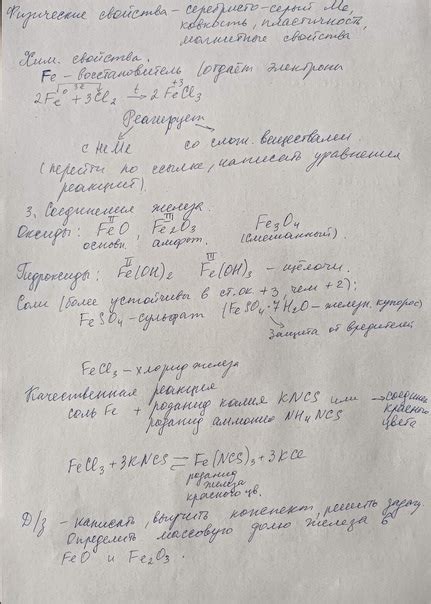 Физические свойства - серебристо-серый Ме,
ковкость, пластичность,
магнитные свойства
Хим. свойства.
Fe - восстановитель (отдаёт электроны
2Fe + 3Cl2 →t 2FeCl3
Реагирует
с НеМе со слож. веществами
(перейти по ссылке, написать уравнения
реакций).
3. Соединения железа.
Оксиды: FeO, Fe2O3 Fe3O4
основн. амфот. (смешанный).
Гидроксиды: Fe(OH)2 Fe(OH)3 - щёлочи.
Соли (более устойчивы в ст.ок. +3, чем +2):
FeSO4 - сульфат (FeSO4·7H2O - железн. купорос)
Защита от вредителей
FeCl3 - хлорид железа
Качественная реакция
соль Fe + роданид калия KNCS или → соедин
роданид аммония NH4NCS красного
цвета
FeCl3 + 3KNCS ⇌ Fe(NCS)3 + 3KCl
роданид
железа
красного цв.
Д/з - написать, выучить конспект, решить задачу
Определить массовую долю железа в
FeO и Fe2O3.